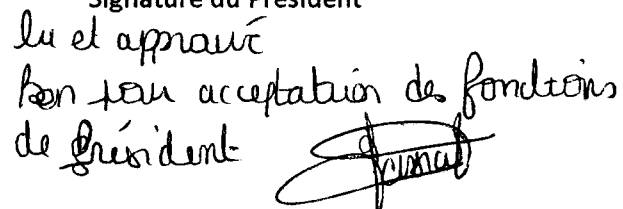 Signature du Président
lu et approuvé
Bon pour acceptation des fonctions
de président